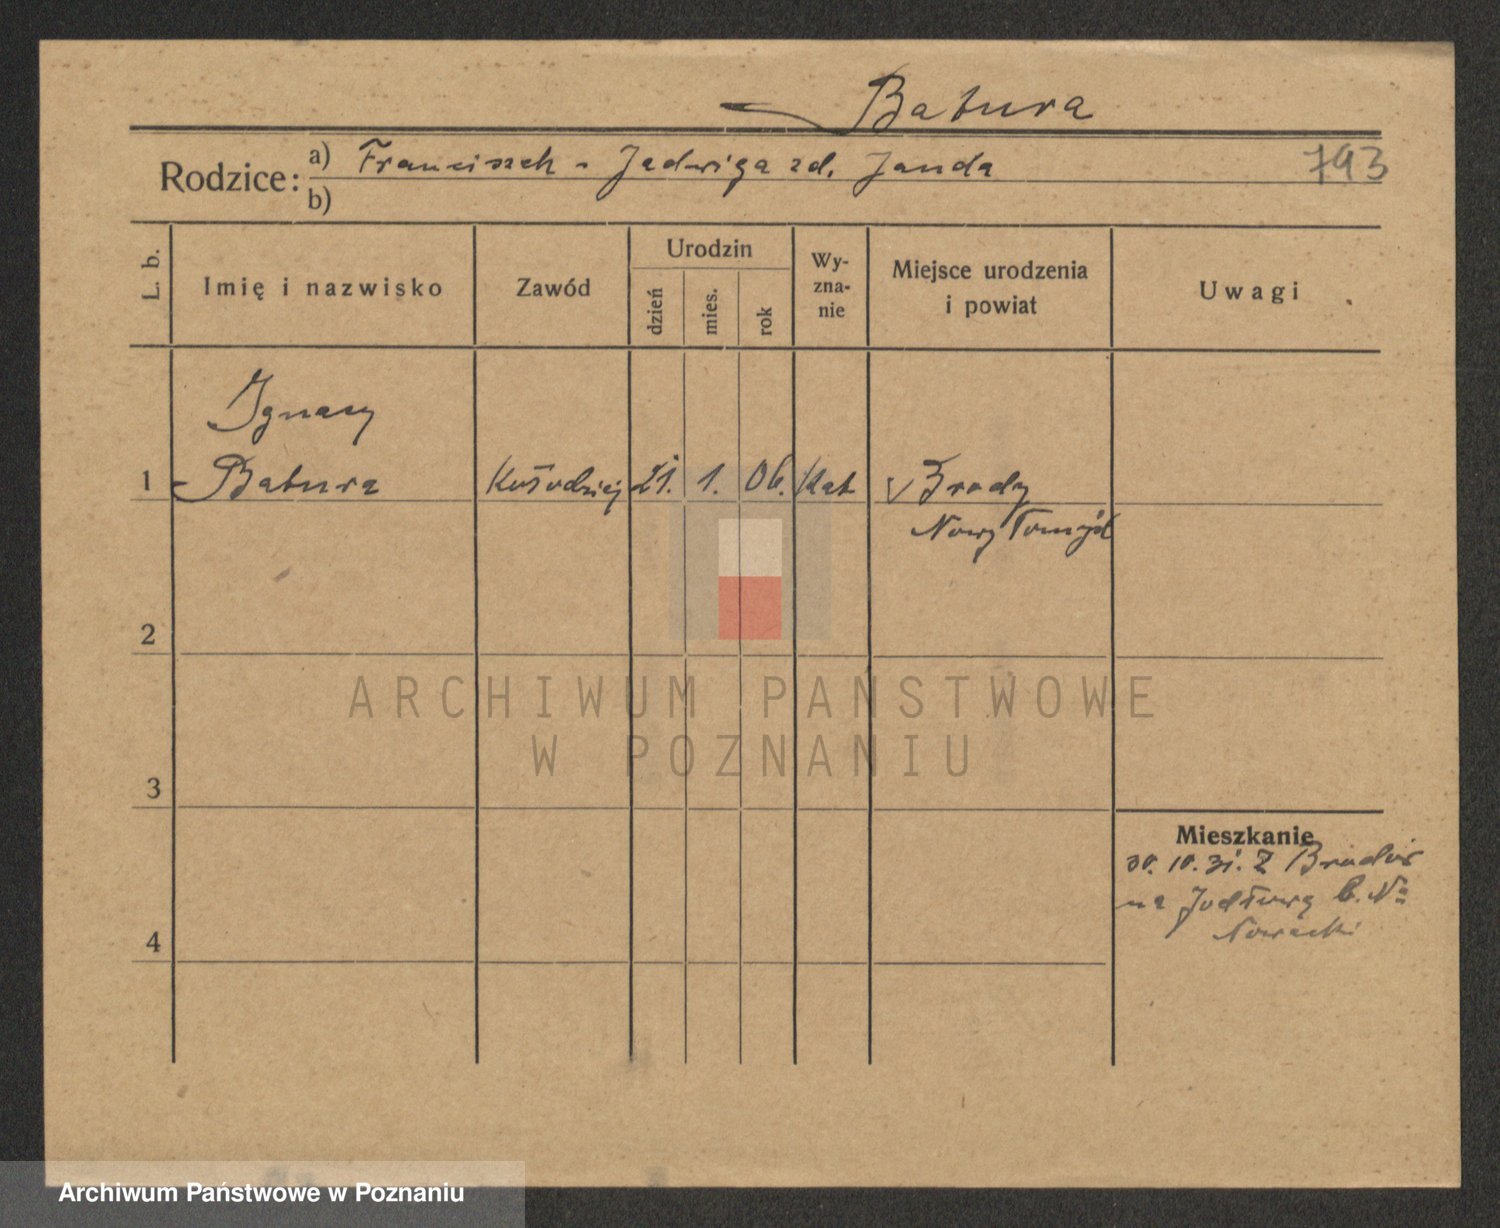 Batura
Rodzice: a) Franciszek - Jadwiga zd. Janda 793
b)
L. b. Imię i nazwisko Zawód Urodzin dzień mies. rok Wy-zna-nie Miejsce urodzenia i powiat Uwagi
Ignacy
1 Batura Kołodziej 21. 1. 06. Kat Brody
Nowy Tomyśl
2
ARCHIWUM PAŃSTWOWE
W POZNANIU
3
Mieszkanie
30. 10. 31. Z Brodów
na Jodłową b. No
Nowacki
4
Archiwum Państwowe w Poznaniu